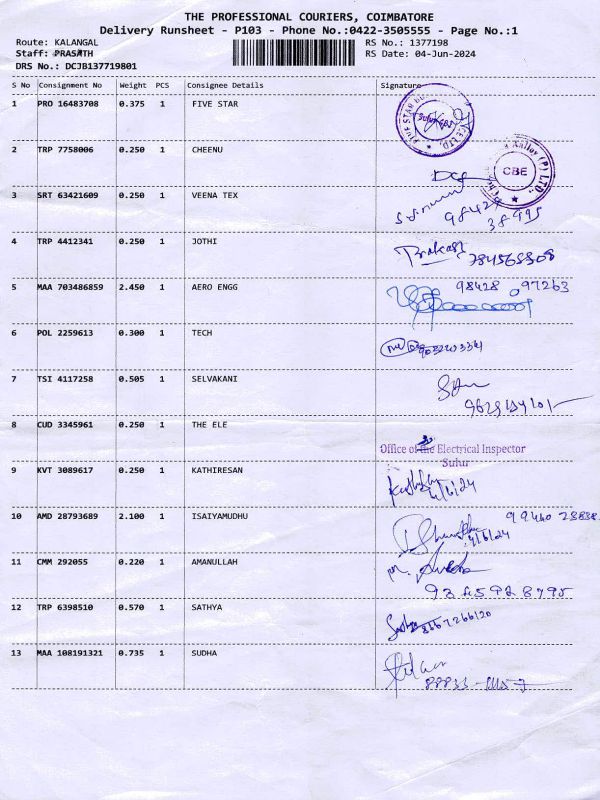 THE PROFESSIONAL COURIERS, COIMBATORE
Delivery Runsheet - P103 - Phone No.:0422-3505555 - Page No.:1
Route: KALANGAL
RS No.: 1377198
Staff: PRASATH
RS Date: 04-Jun-2024
DRS No.: DCJB137719801
S No Consignment No Weight PCS Consignee Details Signature
1 PRO 16483708 0.375 1 FIVE STAR
2 TRP 7758006 0.250 1 CHEENU
CBE
3 SRT 63421609 0.250 1 VEENA TEX
4 TRP 4412341 0.250 1 JOTHI
Prakash
5 MAA 703486859 2.450 1 AERO ENGG
98428 097263
6 POL 2259613 0.300 1 TECH
7 TSI 4117258 0.505 1 SELVAKANI
8 CUD 3345961 0.250 1 THE ELE
Office of the Electrical Inspector
Sulur
9 KVT 3089617 0.250 1 KATHIRESAN
4/6/24
10 AMD 28793689 2.100 1 ISAIYAMUDHU
4/6/24
11 CMM 292055 0.220 1 AMANULLAH
12 TRP 6398510 0.570 1 SATHYA
8667266120
13 MAA 108191321 0.735 1 SUDHA